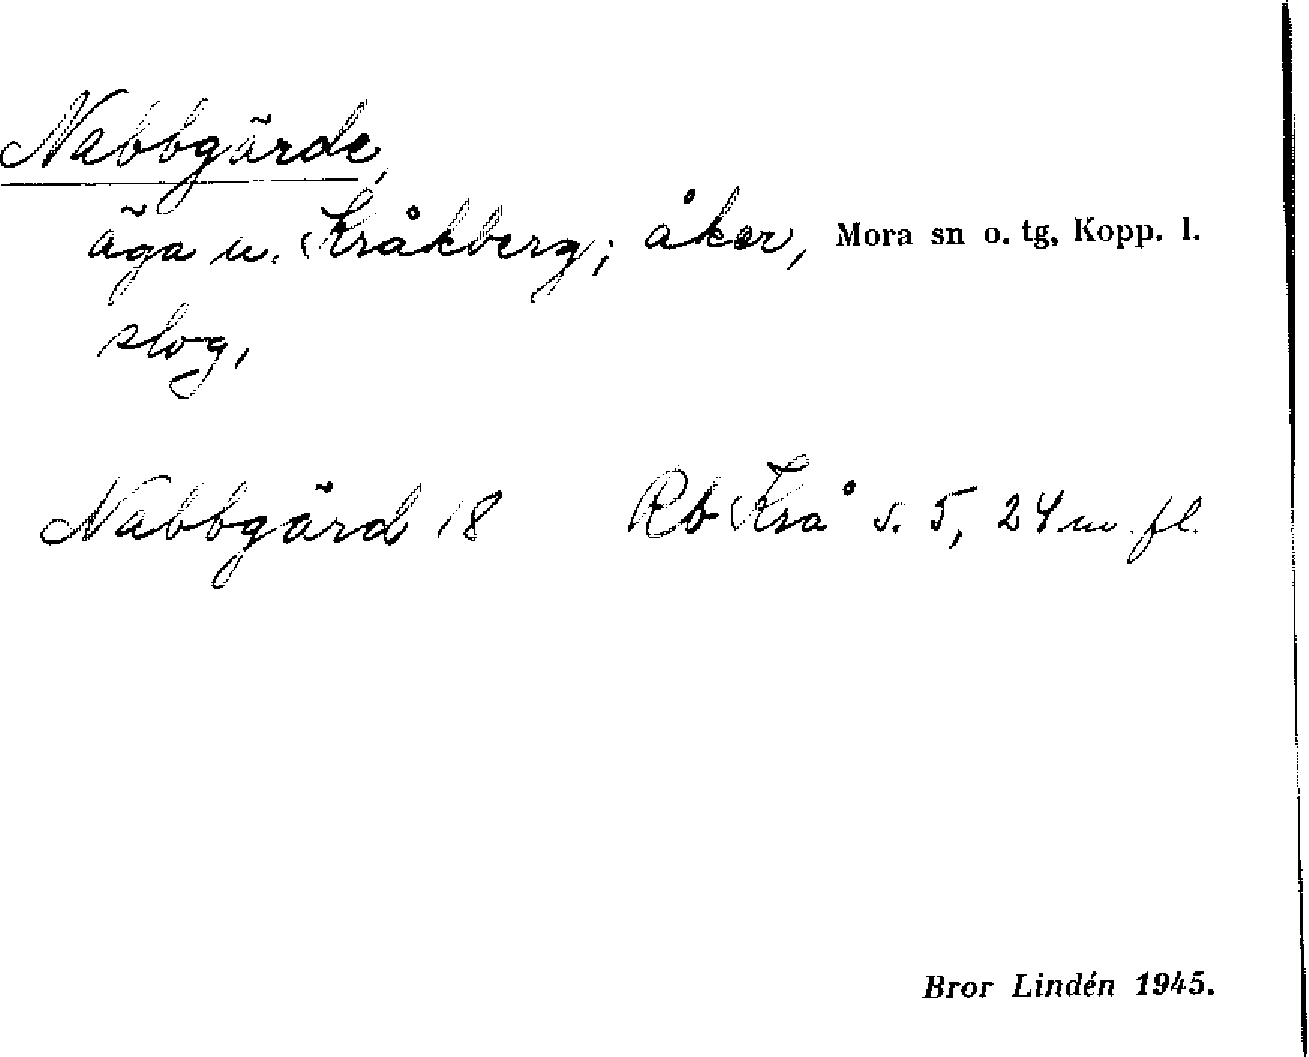 Nabbgärde,
äga u. Kråkberg; åker, Mora sn o. tg, Kopp. l.
slog,
Nabbgärd 18 Rb Krå s. 5, 24 m fl.
Bror Lindén 1945.